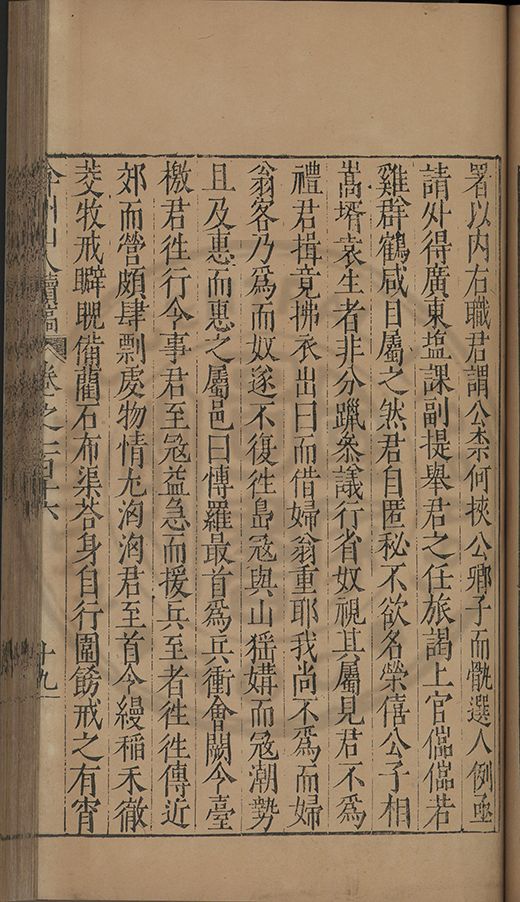 署以内右職君謂公柰何挾公鄉子而骩選人例亟
請外得廣東塩課副提舉君之任旅謁上官儡儡若
雞群鶴咸目屬之然君自匿秘不欲名榮僖公子相
嵩壻袁生者非分躐叅議行省奴視其屬見君不爲
禮君揖竟拂衣出曰而借婦翁重耶我尚不爲而婦
翁客乃爲而奴遂不復徃島冦與山猺媾而冦潮勢
且及惠而惠之屬邑曰愽羅最首爲兵衝會闕令臺
檄君徃行令事君至冦益急而援兵至者徃徃傳近
郊而營頗肆剽虔物情尤洶洶君至首令縵稻禾徹
茭牧戒睥睨備藺石布渠荅身自行圍餝戒之有宵
弇州山人續稿 卷之一百十六 十九